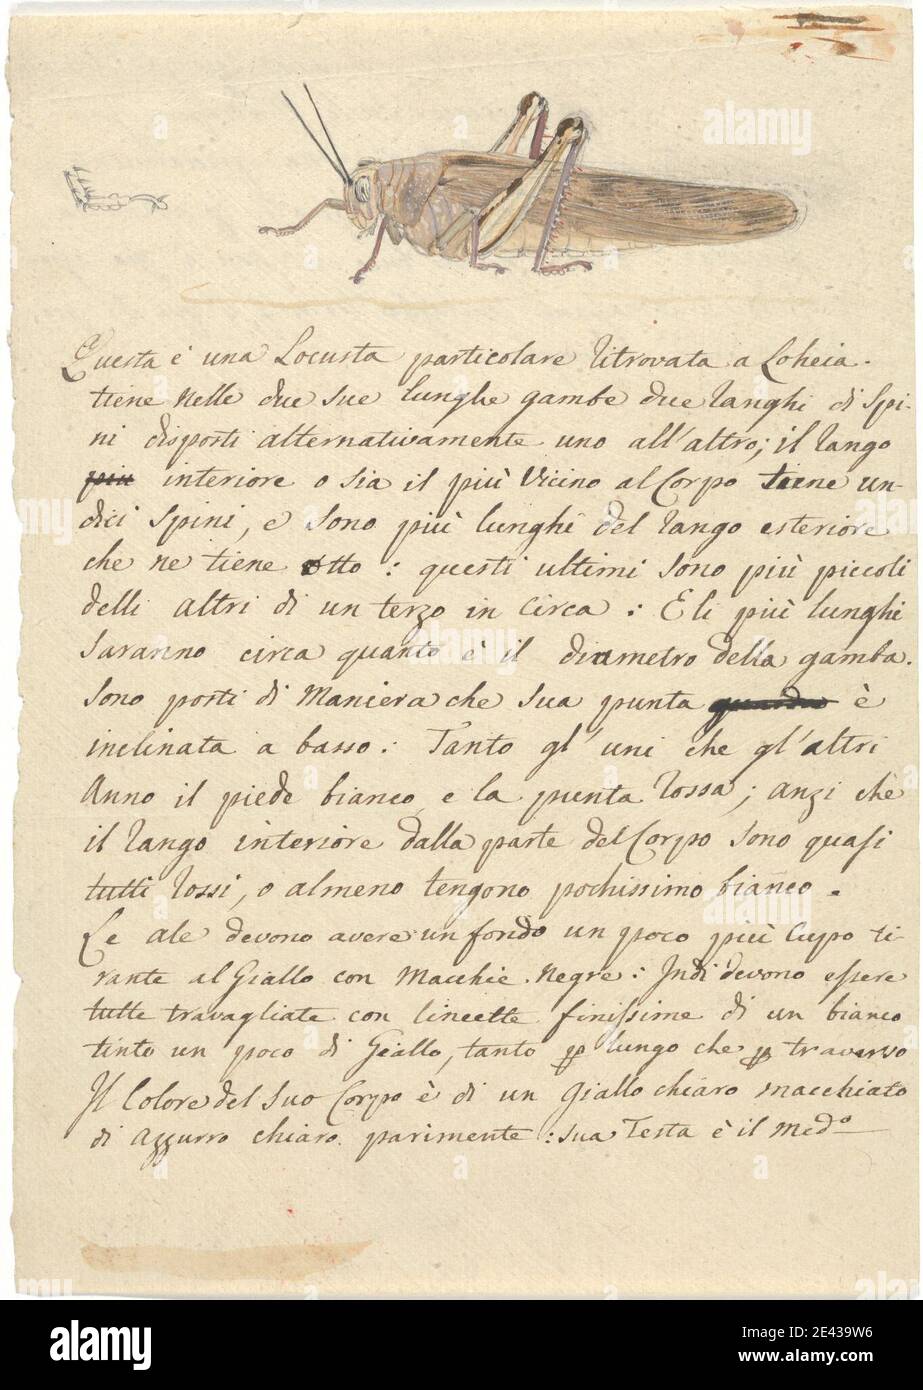 Questa è una Locusta particolare ritrovata a Loheia.
tiene nelle due sue lunghe gambe due ranghi di Spi-
ni disposti alternativamente uno all'altro; il rango
più interiore o sia il più vicino al Corpo tiene un-
dici spini, e sono più lunghi del rango esteriore
che ne tiene otto: questi ultimi sono più piccoli
delli altri di un terzo in circa: E li più lunghi
saranno circa quanto è il diametro della gamba.
Sono posti di Maniera che sua punta è
inclinata a basso: Tanto gl'uni che gl'altri
Anno il piede bianco e la punta rossa; anzi che
il rango interiore dalla parte del Corpo sono quasi
tutti rossi, o almeno tengono pochissimo bianco.
Le ale devono avere un fondo un poco più Cupo ti-
rante al Giallo con Macchie Negre: Indi devono essere
tutte travagliate con lineette finissime di un bianco
tinto un poco di Giallo, tanto p lungo che p traverso
Il Colore del suo Corpo è di un Giallo chiaro macchiato
di azzurro chiaro parimente: sua Testa è il medo
alamy
Image ID: 2E439W6
www.alamy.com